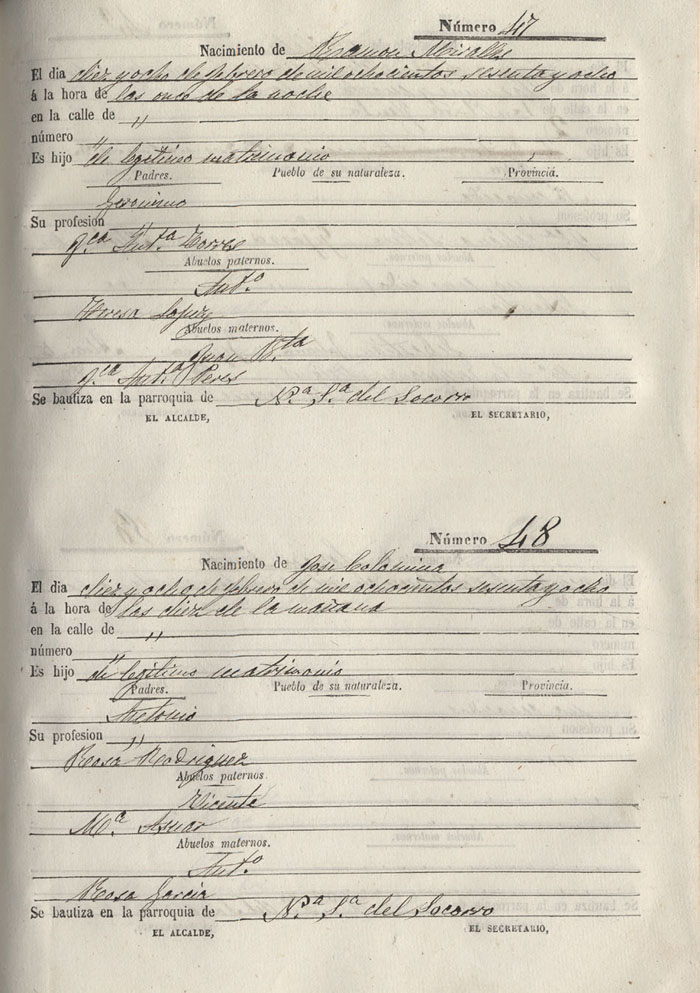 Número 47
Nacimiento de Ramon Miralles
El dia diez y ocho de febrero de mil ochocientos sesenta y ocho
á la hora de las once de la noche
en la calle de "
número "
Es hijo de legitimo matrimonio
Padres. Pueblo de su naturaleza. Provincia.
Geronimo
Su profesion
Fca Anta Torres
Abuelos paternos.
Anto
Teresa Lopez
Abuelos maternos.
Juan Bta
Fca Anta Peres
Se bautiza en la parroquia de Na Sa del Socorro
EL ALCALDE, EL SECRETARIO,
Número 48
Nacimiento de Jose Colomina
El dia diez y ocho de febrero de mil ochocientos sesenta y ocho
á la hora de las diez de la mañana
en la calle de "
número "
Es hijo de legitimo matrimonio
Padres. Pueblo de su naturaleza. Provincia.
Antonio
Su profesion "
Rosa Rodriguez
Abuelos paternos
Vicente
Ma Asnar
Abuelos maternos.
Anto
Rosa Garcia
Se bautiza en la parroquia de Na Sa del Socorro
EL ALCALDE, EL SECRETARIO,